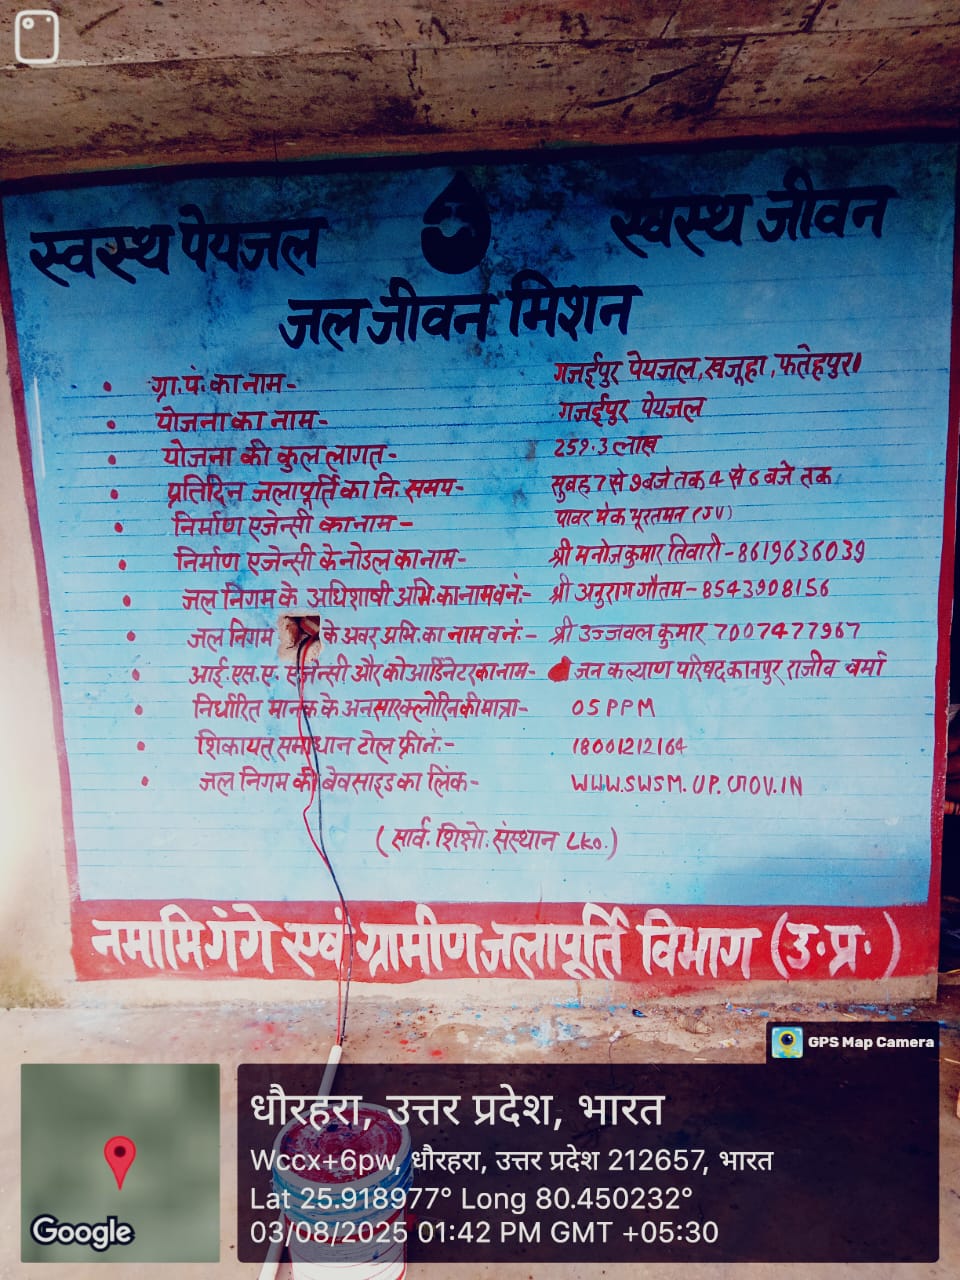 स्वस्थ पेयजल स्वस्थ जीवन
जल जीवन मिशन
• ग्रा.पं. का नाम- गजईपुर पेयजल, खजूहा, फतेहपुर।
• योजना का नाम- गजईपुर पेयजल
• योजना की कुल लागत- 259.3 लाख
• प्रतिदिन जलापूर्ति का नि. समय- सुबह 7 से 9 बजे तक 4 से 6 बजे तक
• निर्माण एजेन्सी का नाम- पावर मेक भूरतमन (JV)
• निर्माण एजेन्सी के नोडल का नाम- श्री मनोज कुमार तिवारी-8619636039
• जल निगम के अधिशाषी अभि. का नाम व नं:- श्री अनुराग गौतम-8543908156
• जल निगम के अवर अभि. का नाम व नं:- श्री उज्जवल कुमार 7007477967
• आई.एस.ए. एजेन्सी और कोआर्डिनेटर का नाम- जन कल्याण परिषद कानपुर राजीव वर्मा
• निर्धारित मानक के अनसार क्लोरिन की मात्रा- 05 PPM
• शिकायत समाधान टोल फ्री नं:- 18001212164
• जल निगम की बेवसाइड का लिंक- WWW.SWSM.UP.GOV.IN
(सार्व. शिक्षो. संस्थान LKO.)
नमामि गंगे एवं ग्रामीण जलापूर्ति विभाग (उ.प्र.)
GPS Map Camera
धौरहरा, उत्तर प्रदेश, भारत
Wccx+6pw, धौरहरा, उत्तर प्रदेश 212657, भारत
Lat 25.918977° Long 80.450232°
03/08/2025 01:42 PM GMT +05:30
Google